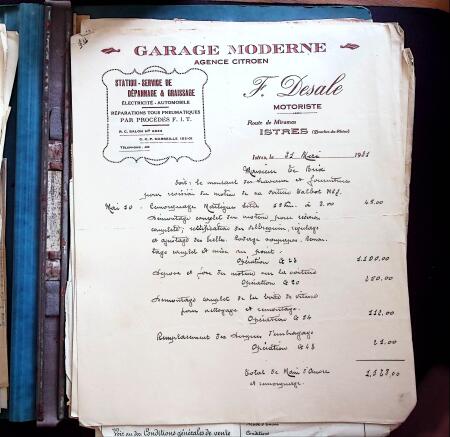 GARAGE MODERNE
AGENCE CITROEN
STATION-SERVICE DE
DÉPANNAGE & GRAISSAGE
ÉLECTRICITÉ - AUTOMOBILE
RÉPARATIONS TOUS PNEUMATIQUES
PAR PROCÉDÉS F. I. T.
R. C. SALON Nº
C. C. P. MARSEILLE
TÉLÉPHONE:
F. Desale
MOTORISTE
Route de Miramas
ISTRES (Bouches-du-Rhône)
Istres, le 31 19
Monsieur de Brix
Doit: le montant des travaux et fournitures
pour révision du moteur de sa voiture Talbot
Mai 20 - remorquage Martigues Istres à 3.00 45.00
Démontage complet du moteur pour révision
complète; rectification du vilebrequin, réglage
et ajustage des
tage complet et mise au point.
Opération G 23 1.100.00
Dépose et pose du moteur sur la voiture
Opération G 20 250.00
Démontage complet de la boîte de vitesse
pour nettoyage et remontage.
Opération G 34 112.00
Remplacement des disques d'embrayage
Opération G 43 21.00
Total de Main d'Œuvre 1.528.00
et remorquage.
Voir au dos Conditions générales de vente
Conditions